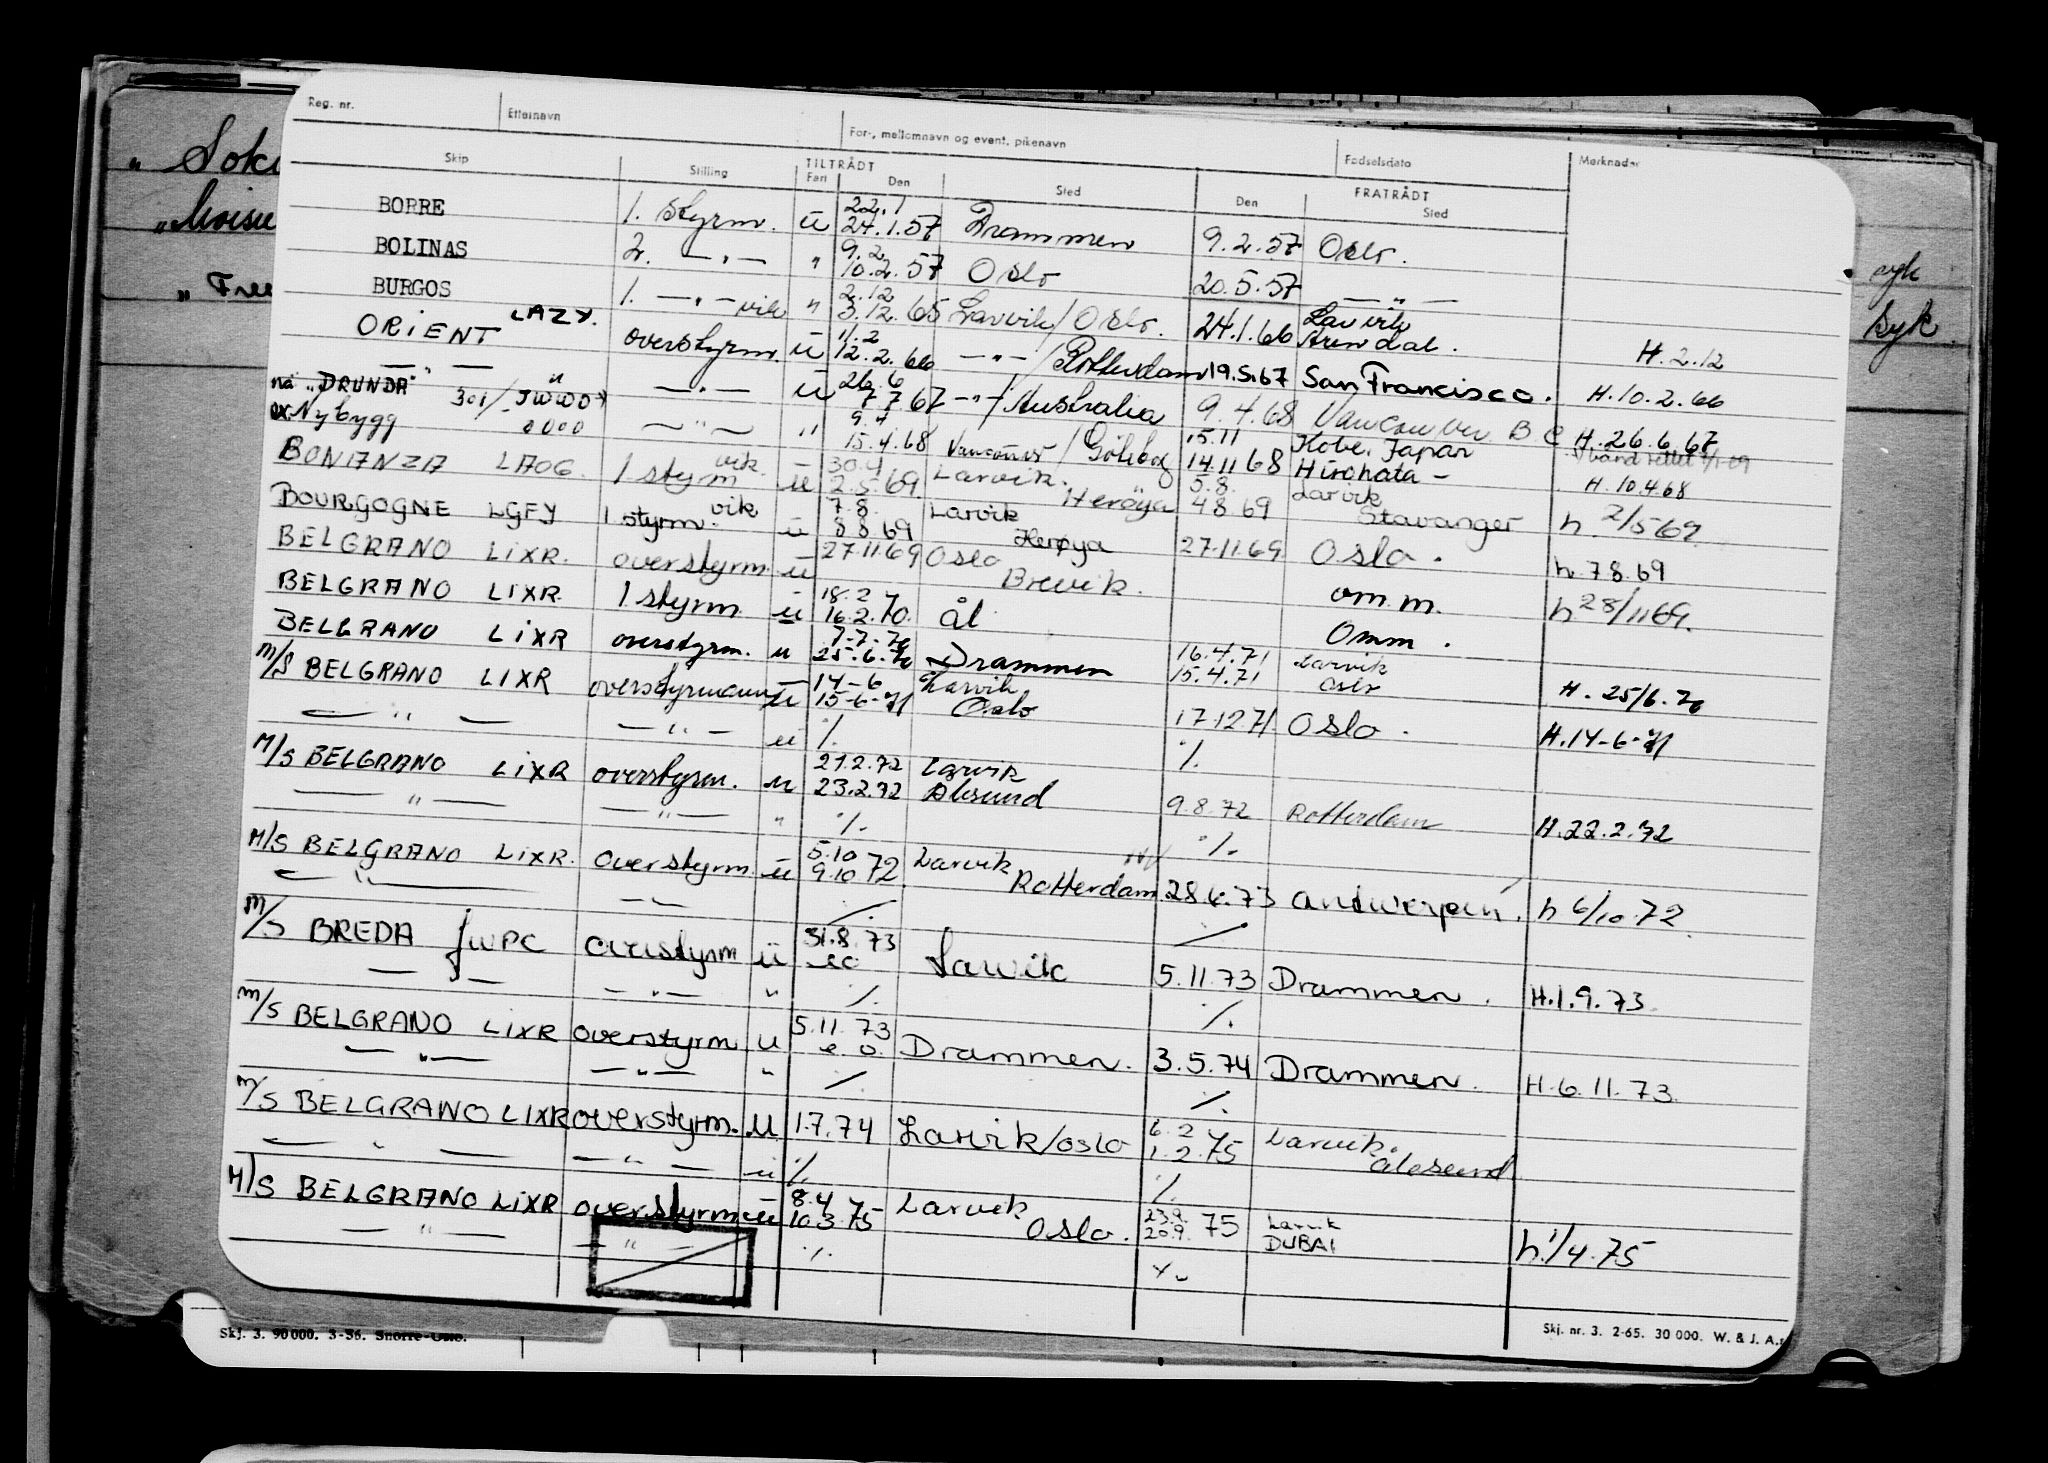 Reg. nr. Etternavn For-, mellomnavn og event. pikenavn Fødselsdato Merknader
Skip Stilling TILTRÅDT Fart Den Sted FRATRÅDT Den Sted
BORRE 1. styrm. u 22.1 24.1.57 Drammen 9.2.57 Oslo.
BOLINAS 2. — " — " 9.2 10.2.57 Oslo 20.5.57 — " —
BURGOS 1. — " — vik " 2.12 3.12.65 Larvik/Oslo. 24.1.66 Larvik Arendal. H.2.12
ORIENT LAZY. overstyrm. u 11.2 12.2.66 — " — /Rotterdam 19.5.67 San Francisco. H.10.2.66
— " — — " — u 26.6 7.7 67 — " — /Australia 9.4.68 Vancouver B C H.26.6.67
nå "DRUNDA" 301/JWWO
ex Nybygg — " — " 9.4 15.4.68 Vancouver/Göteborg 15.11 14.11 68 Kobe, Japan Hirohata – H.10.4.68
BONANZA LAOG. 1 styrm vik. u 30.4 2.5.69 Larvik. Herøya 5.8. 4.8.69 Larvik Stavanger h. 2/5 69.
BOURGOGNE LGFY 1 styrm. vik u 7.8. 8.8.69 Larvik Herøya 27.11.69. Oslo. h. 7.8.69
BELGRANO LIXR. overstyrm. u 27.11.69 Oslo Brevik. om.m. h 28/11 69.
BELGRANO LIXR. 1 styrm. u 18.2 16.2.70. ål Omm.
BELGRANO LIXR overstyrm. u 7-7-70 25-6-70 Drammen 16.4.71 15.4.71 Larvik Oslo H. 25/6.70
M/S BELGRANO LIXR overstyrmann u 14-6 15-6-71 Larvik Oslo 17.12.71 Oslo. H.14-6-71
— " — — " — u %.  %.
M/S BELGRANO LIXR overstyrm. u 21.2.72 23.2.72 Larvik Ålesund 9.8.72 Rotterdam H.22.2.72
— " — — " — " %. %.
M/S BELGRANO LIXR. overstyrm. u 5.10 9.10 72. Larvik Rotterdam 28.6.73 Antwerpen. h 6/10.72.
— " — — " — %. %
M/S BREDA JWPC overstyrm u 31.8.73 eo Larvik 5.11.73 Drammen. H.1.9.73.
— " — — " — " %.  %.
M/S BELGRANO LIXR overstyrm u 5.11.73 e.o. Drammen. 3.5.74 Drammen. H.6.11.73.
— " — — " — " %. %.
M/S BELGRANO LIXR overstyrm. u 1.7.74 Larvik/Oslo 6.2 1.2.75 Larvik. Ålesund
— " — — " — u %. %.
M/S BELGRANO LIXR overstyrm u 8.4 10.3.75 Larvik Oslo. 23.9. 20.9. 75 Larvik DUBAI h.1/4.75
— " — — " — %.
Skj. nr. 3. 2-65. 30 000. W. & J. A.
Skj. 3. 90 000. 3-56. Snorre-Oslo.
syk
syk